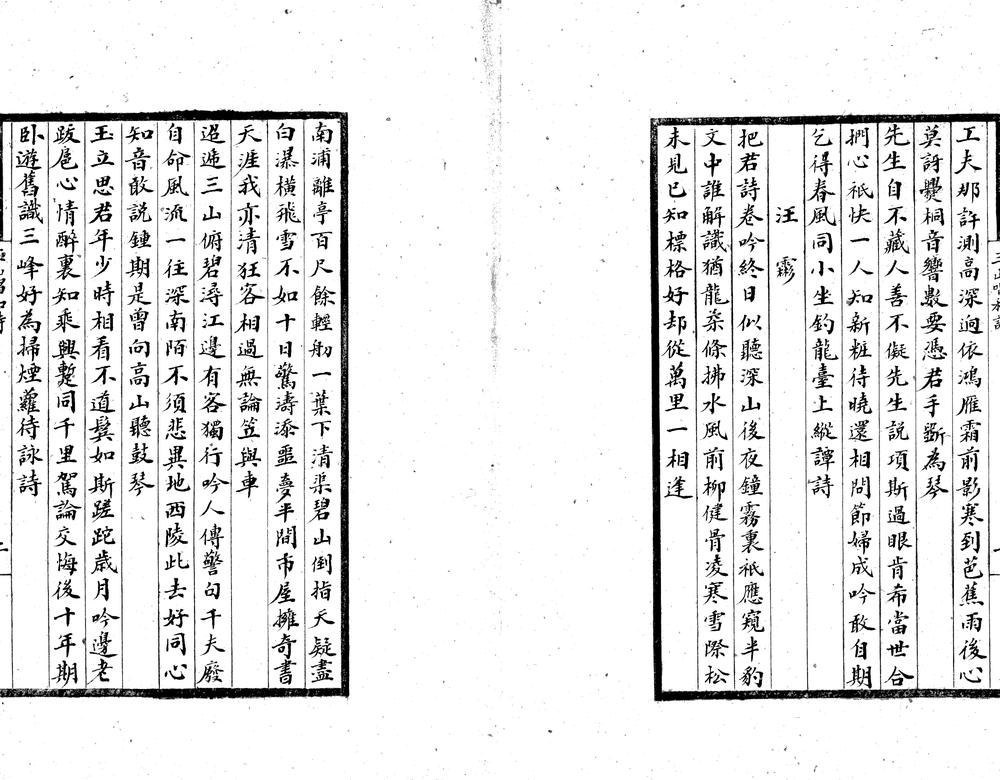 工夫那許測高深迥依鴻雁霜前影寒到芭蕉雨後心
莫訝爨桐音響數要憑君手斲為琴
先生自不藏人善不儗先生説項斯過眼肯希當世合
捫心祇怏一人知新粧待曉還相問節婦成吟敢自期
乞得春風同小坐釣龍臺上縱譚詩
汪
把君詩卷吟終日似聽深山後夜鐘霧裏祇應窺半豹
文中誰解識猶龍柒條拂水風前柳健骨凌寒雪際松
未見已知標格好却從萬里一相逢
南浦離亭百尺餘輕舠一葉下清渠碧山倒指天疑盡
白瀑橫飛雪不如十日驚濤添噩夢半間市屋擁奇書
天涯我亦清狂客相過無論笠與車
迢遞三山俯碧潯江邊有客獨行吟人傳警句千夫廢
自命風流一往深南陌不須悲異地西陵此去好同心
知音敢説鍾期是曾向高山聽鼓琴
玉立思君年少時相看不道鬓如斯蹉跎歲月吟邊老
跋扈心情醉裏知乘興蹔同千里駕論交悔後十年期
卧遊舊識三峰好為掃煙蘿待詠詩